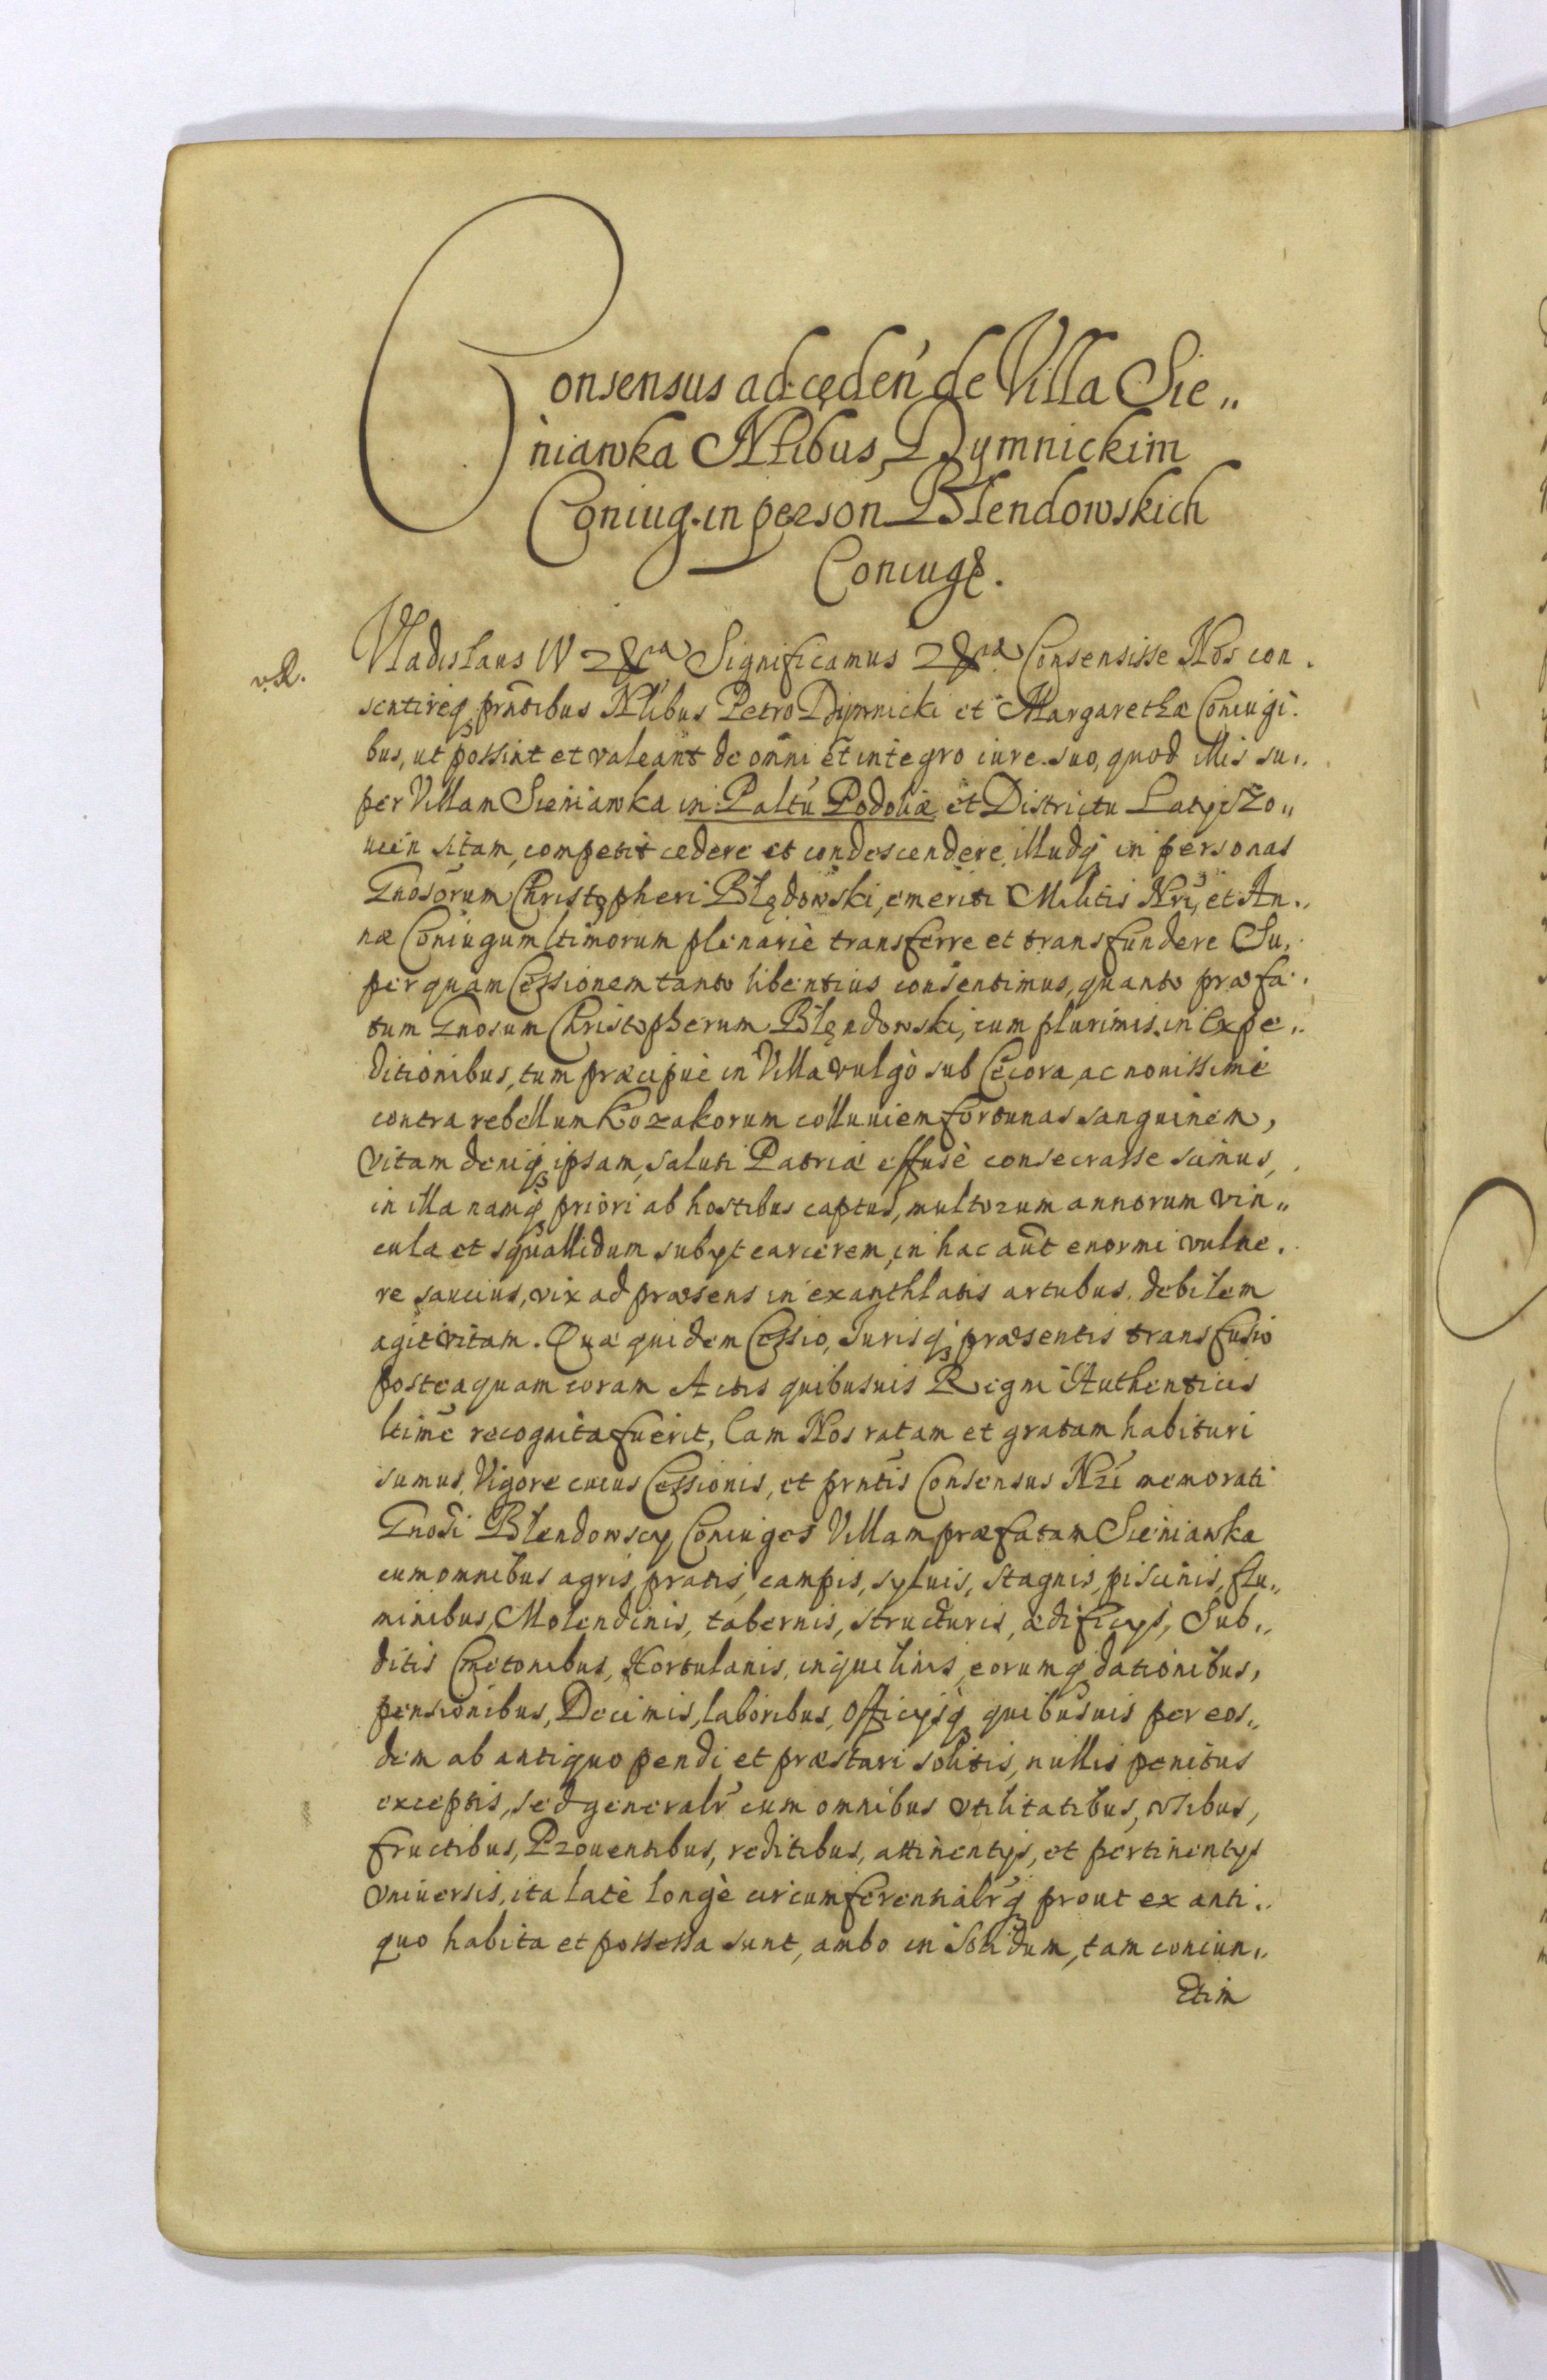 Consensus ad cęden̄ de Villa Sie„
niawka Nlibus Dymnickim
Coniug. in person Blendowskich
Coniugę.
v.R.
Vladislaus IV &cra Significamus &cra Consensisse Nos con.
sentireq₃ prn̄tibus Nlibus Petro Dymnicki et Margarethæ Coniugi.
bus, ut possint et valeant de omni et integro iure suo, quod illis su„
per Villam Sieniawka in Paltū Podoliæ et Districtu Latyczo„
uień sitam, competit cedere et condescendere, illudq₃ in personas
Gnosorum Christopheri Blędowski, emeriti Militis Nri, et An„
næ Coniugum ltimorum plenariè transferre et transfundere Su„
per quam Cessionem tanto libentius consentimus, quanto præfa.
tum Gnosum Christopherum Blęndowski, cum plurimis in Expe„
ditionibus, tum præcipuè in Villa vulgò sub Cecora, ac nouissimè
contra rebellum Kozakorum colluuiem fortunas sanguinem,
vitam deniq₃ ipsam, saluti Patriæ effusè consecrasse scimus,
in illa namq₃ priori ab hostibus captus, multorum annorum vin„
cula et squallidum subyt carcerem, in hac aūt enormi vulne.
re saucius, vix ad præsens in exanthlatis artubus debilem
agit vitam. Quæ quidem Cessio, Jurisq₃ præsentis transfusio
posteaquam coram Actis quibusuis Regni Authenticis
ltimè recognita fuerit, Eam Nos ratam et gratam habituri
sumus, Vigore cuius Cessionis, et prntis Consensus Nri memorati
Gnosi Blendowscy Coniuges Villam præfatam Sieniawka
cum omnibus agris, pratis, campis, syluis, stagnis, piscinis, flu„
minibus, Molendinis, tabernis, structuris, ædificys, Sub„
ditis Cmetonibus, Hortulanis, inquilinis, eorumq₃ dationibus,
pensionibus, Decimis, laboribus, officysq₃ quibusuis per eos„
dem ab antiquo pendi et præstari solitis, nullis penitus
exceptis, sed generalr cum omnibus vtilitatibus, vsibus,
fructibus, Prouentibus, reditibus, attinentys, et pertinentys
vniuersis, ita latè longè circumferentialrq₃ prout ex anti„
quo habita et possessa sunt, ambo in solidum, tam coniun„
ctim